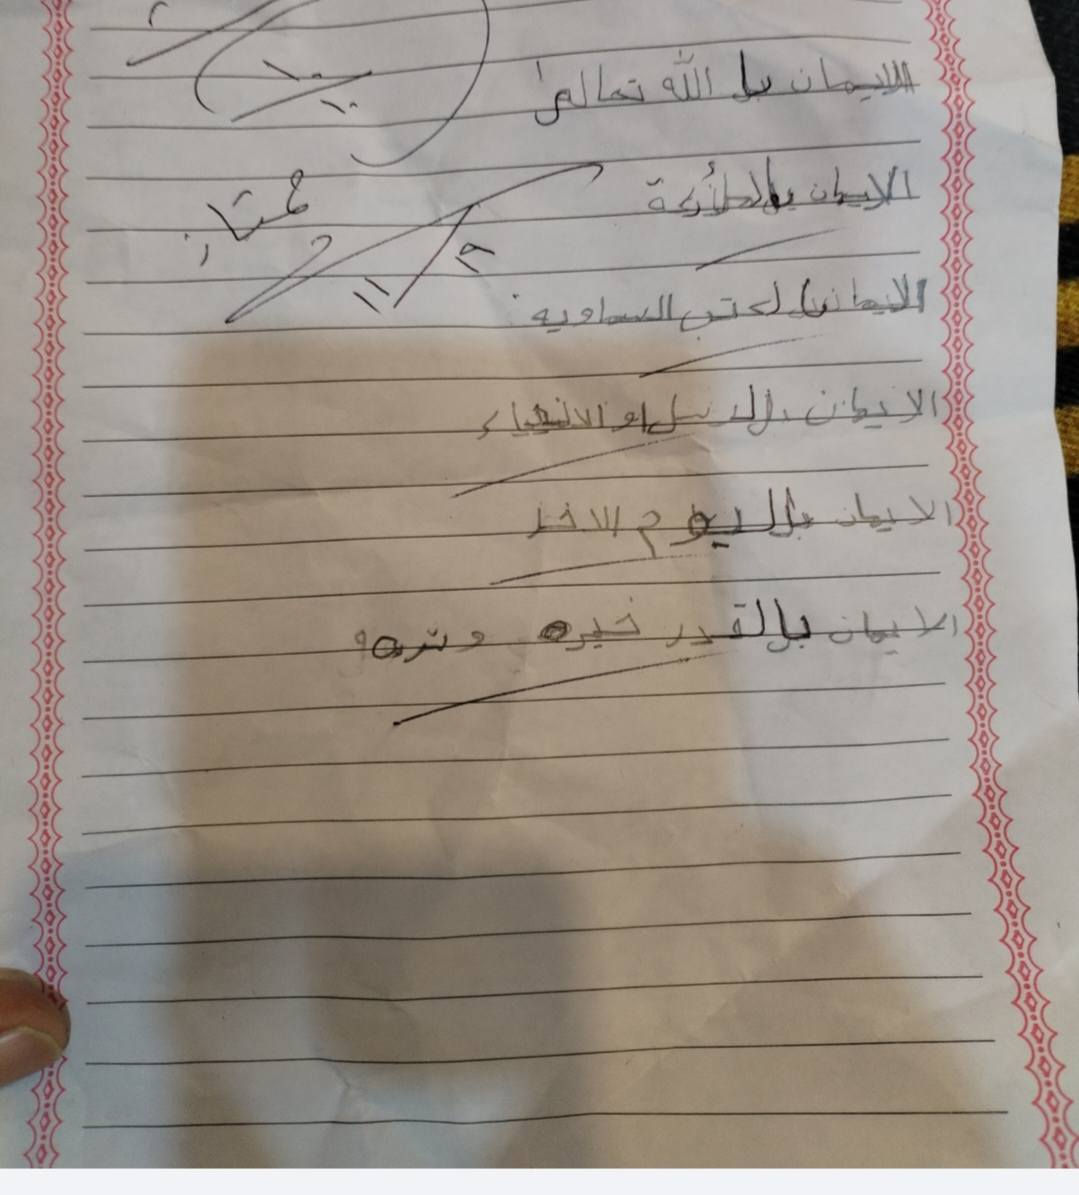 ١٠
١٠
الايمان بل الله تعالى
الايمان بالملأكة
ممتاز
١٩
١١
الايمان بل لكتب السماويه
الايمان بالرسل او الانبياء
الايمان بال اليوم الاخر
الايمان بالقدر خيره وشره